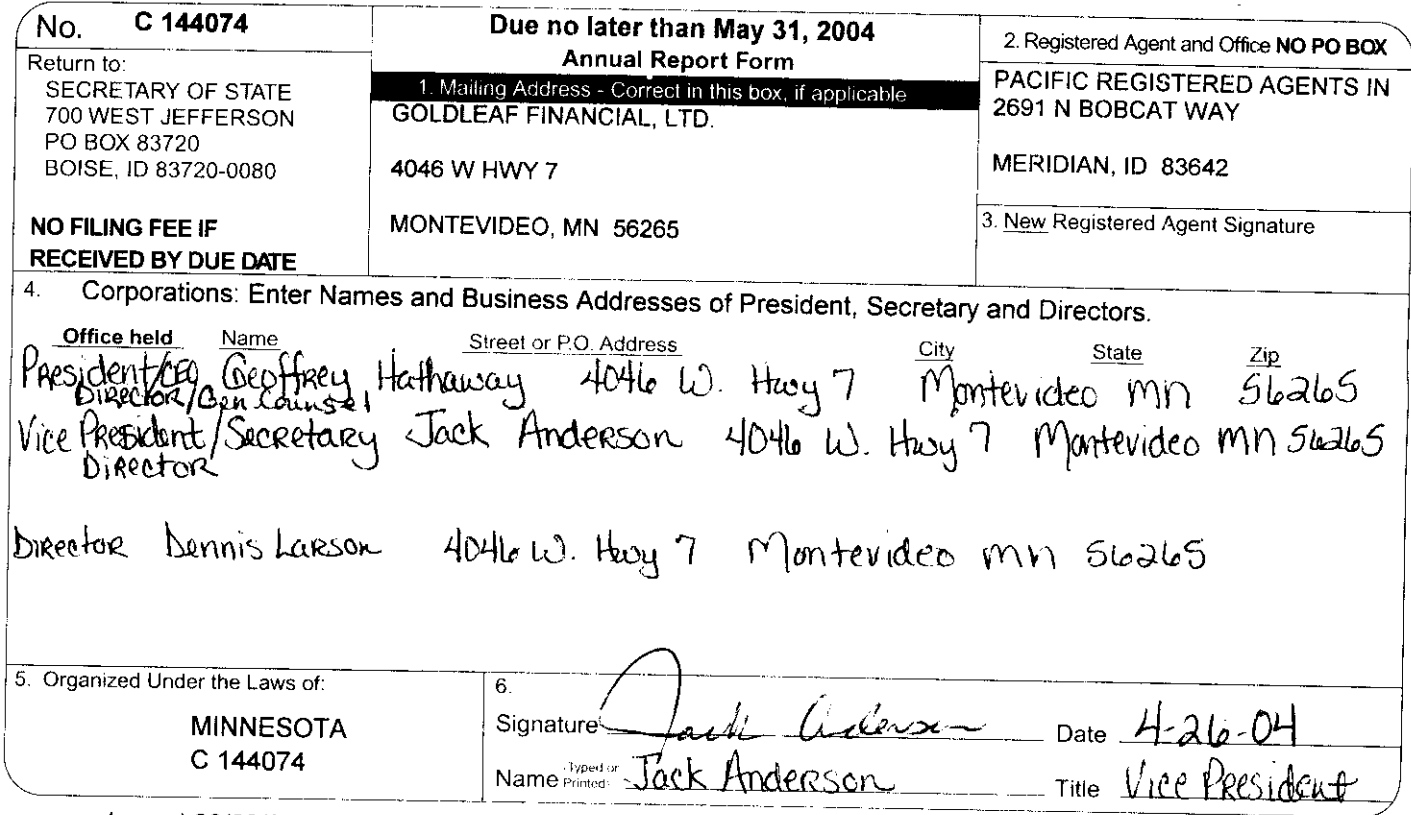 No. C 144074
Return to:
SECRETARY OF STATE
700 WEST JEFFERSON
PO BOX 83720
BOISE, ID 83720-0080
NO FILING FEE IF
RECEIVED BY DUE DATE
Due no later than May 31, 2004
Annual Report Form
1. Mailing Address - Correct in this box, if applicable
GOLDLEAF FINANCIAL, LTD.
4046 W HWY 7
MONTEVIDEO, MN 56265
2. Registered Agent and Office NO PO BOX
PACIFIC REGISTERED AGENTS IN
2691 N BOBCAT WAY
MERIDIAN, ID 83642
3. New Registered Agent Signature
4. Corporations: Enter Names and Business Addresses of President, Secretary and Directors.
Office held Name Street or P.O. Address City State Zip
President/CEO Geoffrey Hathaway 4046 W. Hwy 7 Montevideo mn 56265
Director/Gen Counsel
Vice President/Secretary Jack Anderson 4046 W. Hwy 7 Montevideo mn 56265
Director
Director Dennis Larson 4046 W. Hwy 7 Montevideo mn 56265
5. Organized Under the Laws of:
MINNESOTA
C 144074
6.
Signature Jack Anderson Date 4-26-04
Name Typed or Printed: Jack Anderson Title Vice President